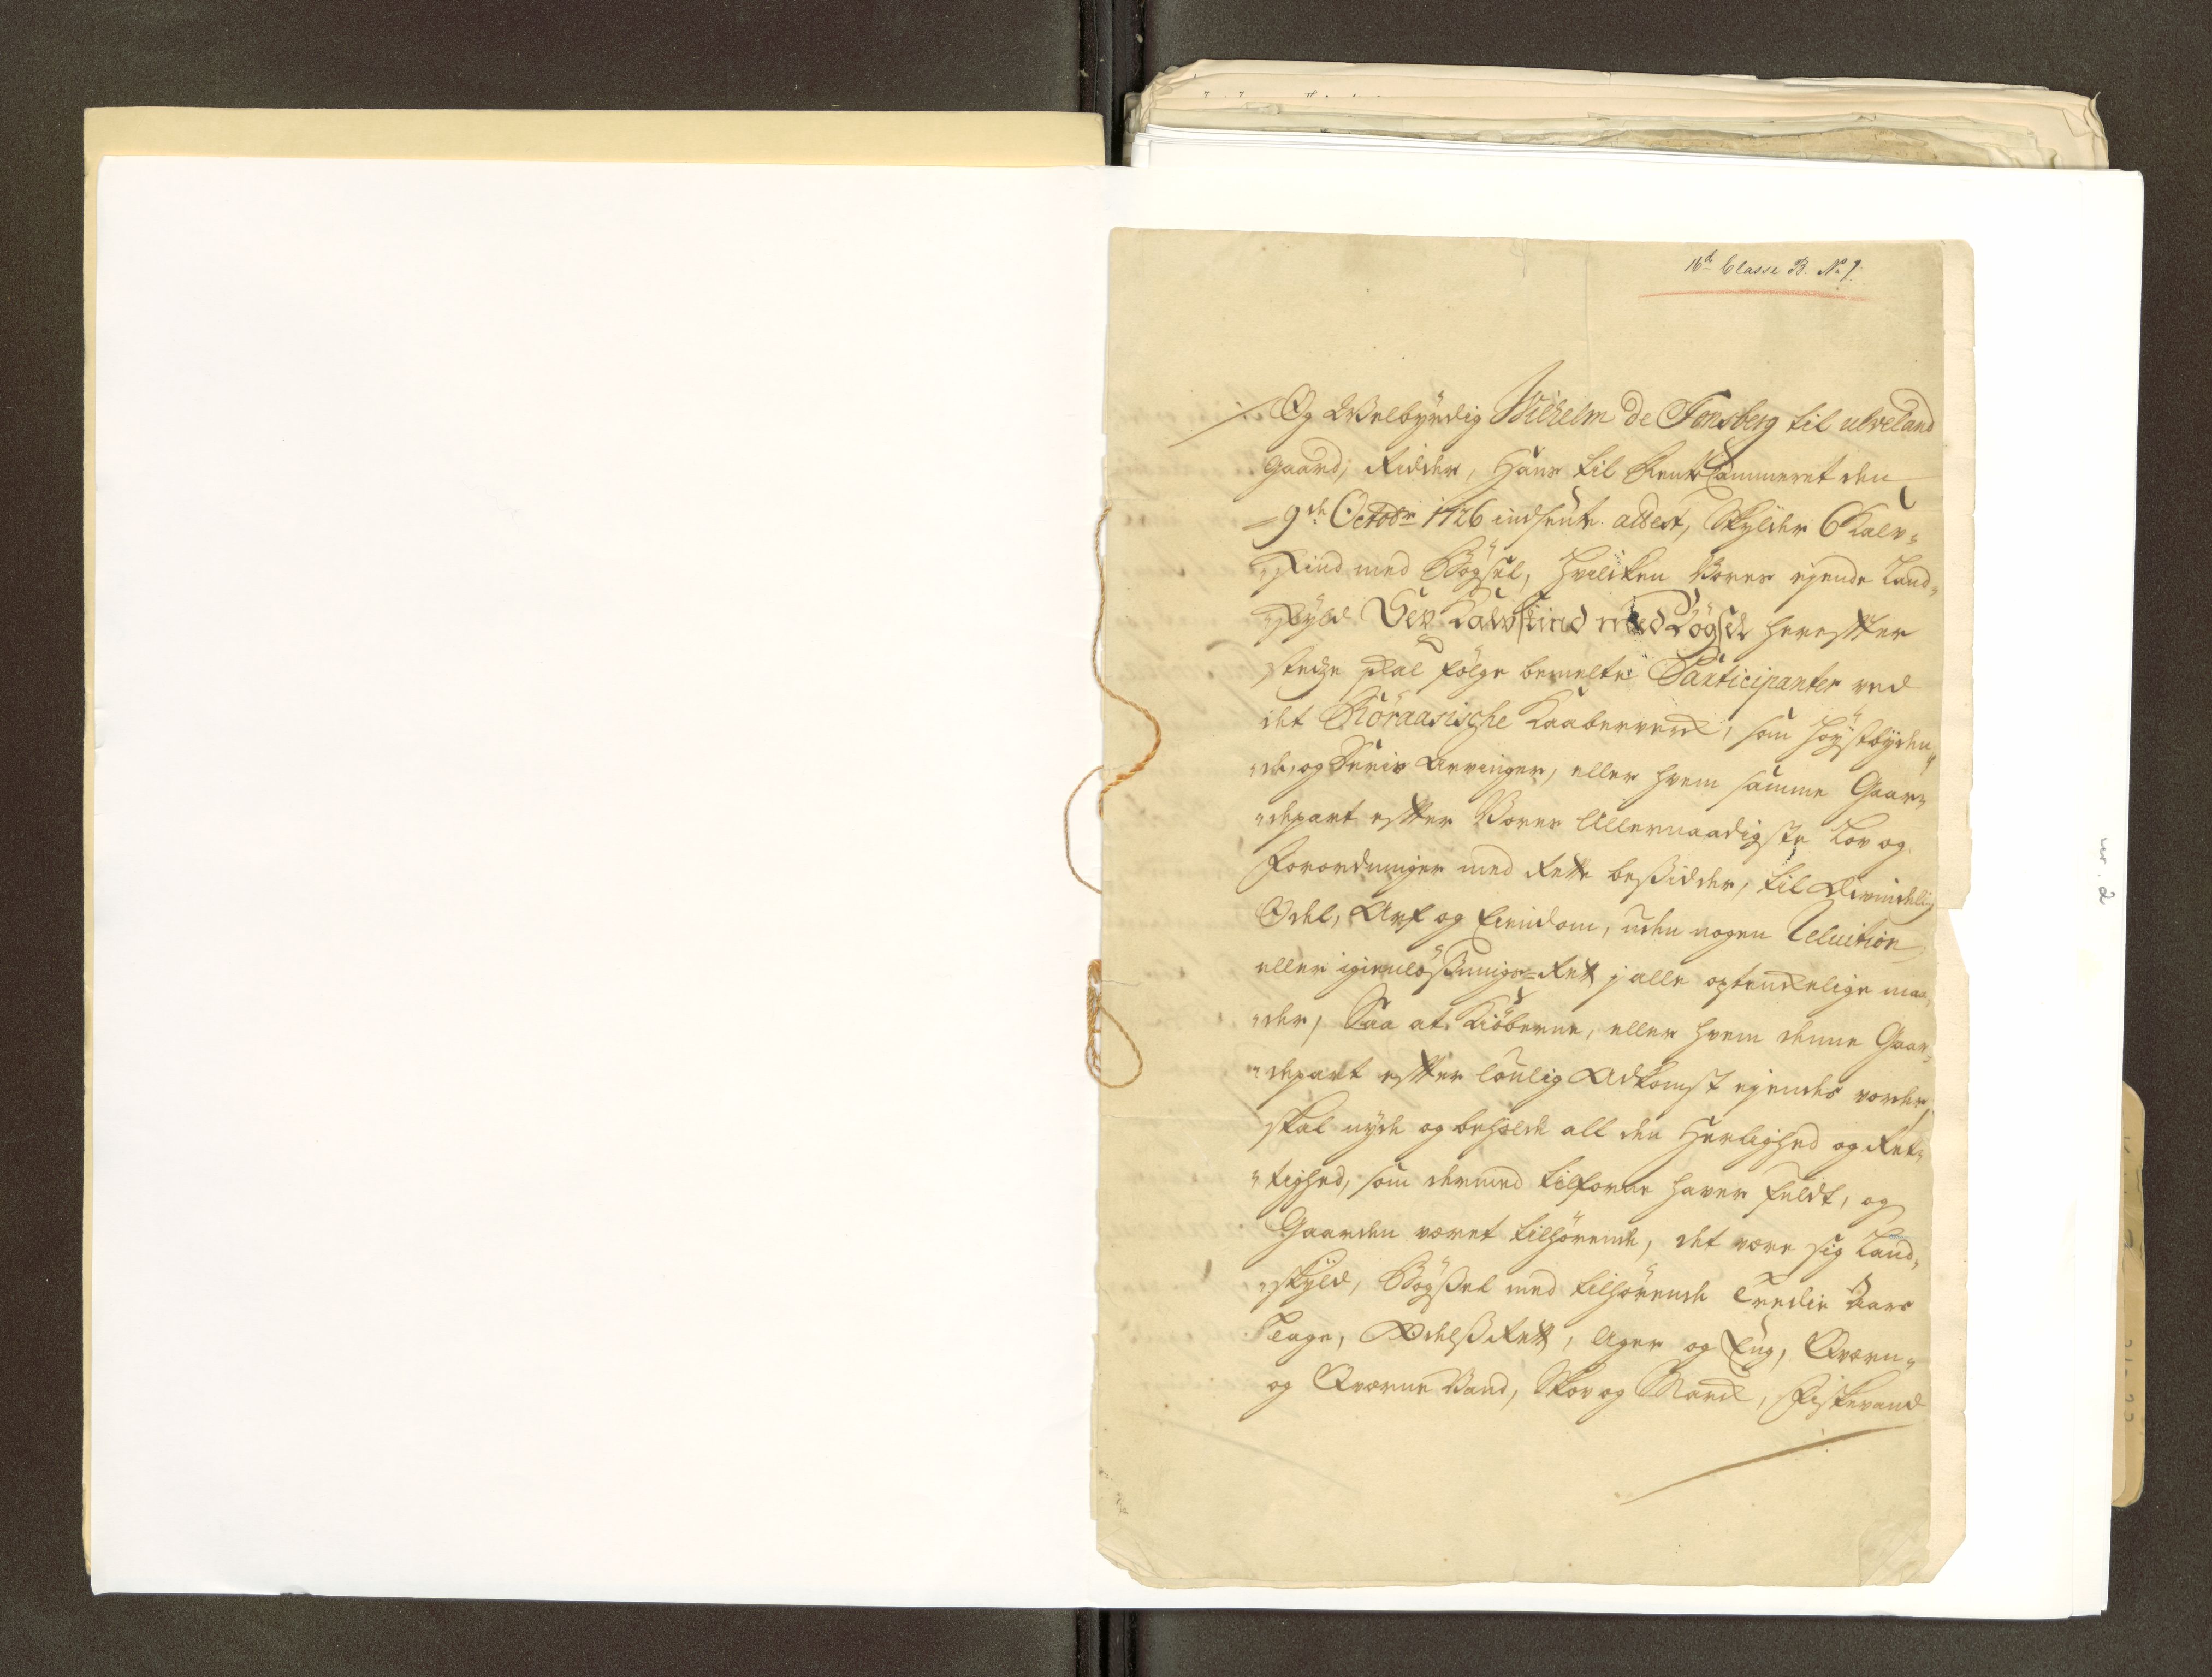 16de Classe B. No 1.
Og Welbyrdig Wilhelm de Tonsberg til ulveland
gaard, Ridder, Hans til RenteCammeret den
9de Octobr 1726 indsente attest, Skylder 6 Kalv-
skind med Bögsel, hvilken Vores ejende Land-
skyld Sex Kalvskind med Bögsel herefter
stedze skal følge bemelte Participanter ved
det Röraasische Kaaberverck, som Høystbyden-
de, og Deris Arvinger, eller hvem samme Gaar-
depart efter Vores Allernaadigste Lov og
Forordninger med Rette besidder, til Uwindelig
Odel, Arf og Eiendom, uden nogen Reluition
eller igienløsnings-Rett j alle optenckelige maa-
der, Saa at Kiöberne, eller hvem denne Gaar-
depart efter loulig Adkomst ejendes vorder,
skal nyde og beholde all den Herlighed og Ret-
tighed, som dermed tilforne haver fuldt, og
Gaarden været tilhörende, det være sig Land-
skyld, Bögsel med tilhörende Tredie Aars
Tage, Odelss Rett, Ager og Eng, Qværn-
og Qværne Vand, Skov og Marck, Fiskevand
nr. 2